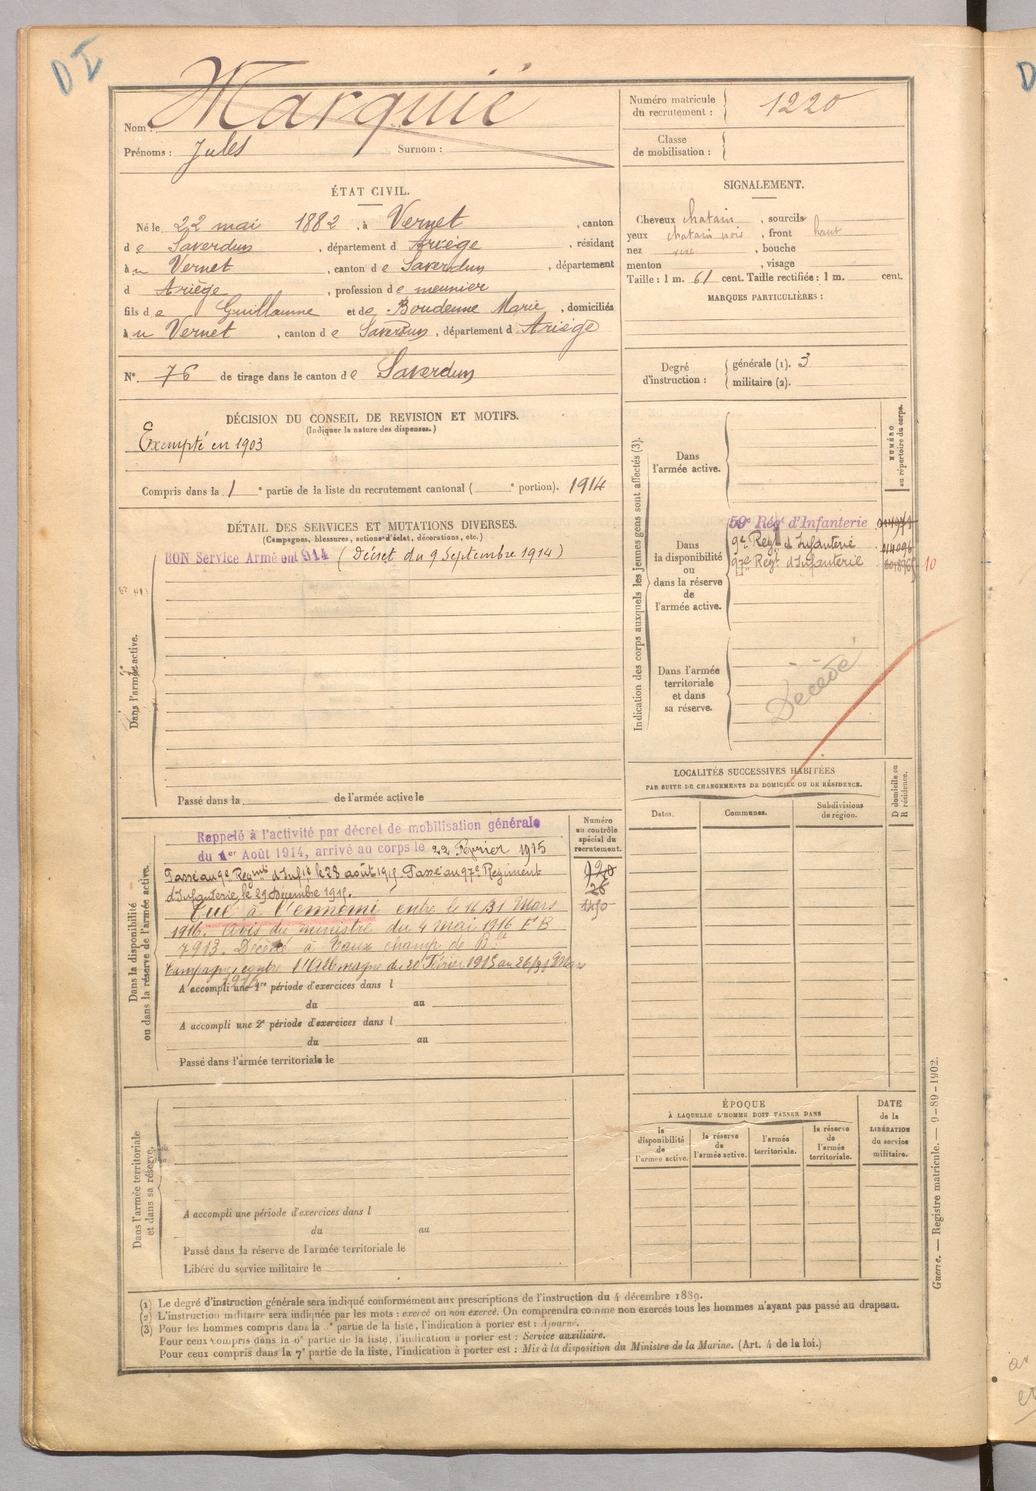 DI
Nom : Marquié
Prénoms : Jules Surnom :
Numéro matricule du recrutement : 1220
Classe de mobilisation :
ÉTAT CIVIL.
Né le 22 mai 1882, à Vernet, canton
de Saverdun, département d Ariège, résidant
à u Vernet, canton de Saverdun, département
d Ariège, profession de meunier
fils de Guillaume et de Boudenne Marie, domiciliés
à u Vernet, canton de Saverdun, département d Ariège
N° 76 de tirage dans le canton de Saverdun
SIGNALEMENT.
Cheveux chatain, sourcils
yeux chatain, front haut
nez, bouche
menton, visage
Taille : 1 m. 61 cent. Taille rectifiée : 1 m. cent.
MARQUES PARTICULIÈRES :
Degré d'instruction : générale (1). 3
militaire (2).
DÉCISION DU CONSEIL DE REVISION ET MOTIFS.
(Indiquer la nature des dispenses.)
Exempté en 1903
Compris dans la 1 e partie de la liste du recrutement cantonal ( e portion). 1914
DÉTAIL DES SERVICES ET MUTATIONS DIVERSES.
(Campagnes, blessures, actions d'éclat, décorations, etc.)
BON Service Armé en 1914 (Décret du 9 Septembre 1914)
Dans l'armée active.
Passé dans la de l'armée active le
Indication des corps auxquels les jeunes gens sont affectés (3).
NUMÉRO au répertoire du corps.
Dans l'armée active.
Dans la disponibilité ou dans la réserve de l'armée active.
59e Régt d'Infanterie
9e Régt d'Infanterie 014096
97e Régt d'Infanterie
10
Dans l'armée territoriale et dans sa réserve.
Décédé
LOCALITÉS SUCCESSIVES HABITÉES
PAR SUITE DE CHANGEMENTS DE DOMICILE OU DE RÉSIDENCE.
Dates. Communes. Subdivisions de région. D domicile ou R résidence.
Dans la disponibilité ou dans la réserve de l'armée active.
Numéro au contrôle spécial du recrutement.
Rappelé à l'activité par décret de mobilisation générale
du 1er Août 1914, arrivé au corps le 22 Février 1915
Passé au 9e Regmt d'Infie le 23 août 1915 Passé au 97e Régiment
d'Infanterie le 29 Décembre 1915.
Tué à l'ennemi entre le 26/31 Mars
1916. Avis du ministre du 4 mai 1916 F B
7913. Décédé à Vaux champ de Blle
Campagne contre l'Allemagne du 22 Février 1915 au 26/31 Mars
1916
A accompli une 1re période d'exercices dans l
du au
A accompli une 2e période d'exercices dans l
du au
Passé dans l'armée territoriale le
Dans l'armée territoriale et dans sa réserve.
A accompli une période d'exercices dans l
du au
Passé dans la réserve de l'armée territoriale le
Libéré du service militaire le
ÉPOQUE
À LAQUELLE L'HOMME DOIT PASSER DANS
la disponibilité de l'armée active. la réserve de l'armée active. l'armée territoriale. la réserve de l'armée territoriale.
DATE de la LIBÉRATION du service militaire.
(1) Le degré d'instruction générale sera indiqué conformément aux prescriptions de l'instruction du 4 décembre 1889.
(2) L'instruction militaire sera indiquée par les mots : exercé ou non exercé. On comprendra comme non exercés tous les hommes n'ayant pas passé au drapeau.
(3) Pour les hommes compris dans la e partie de la liste, l'indication à porter est : Ajourné.
Pour ceux compris dans la 6e partie de la liste, l'indication à porter est : Service auxiliaire.
Pour ceux compris dans la 7e partie de la liste, l'indication à porter est : Mis à la disposition du Ministre de la Marine. (Art. 4 de la loi.)
Guerre. — Registre matricule. — 9-89-1902.